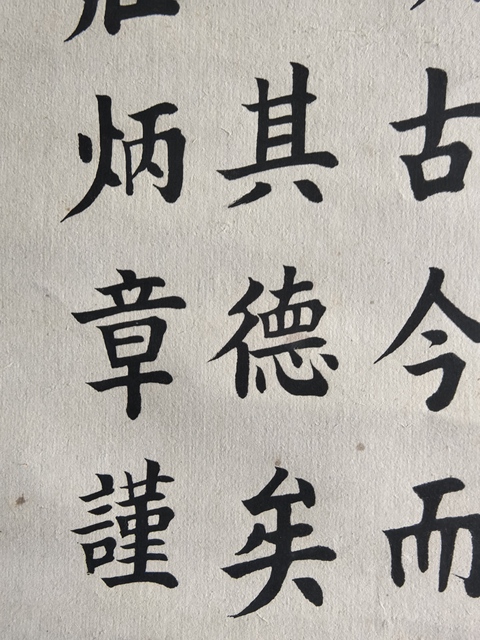 古今而
其德矣
炳章謹